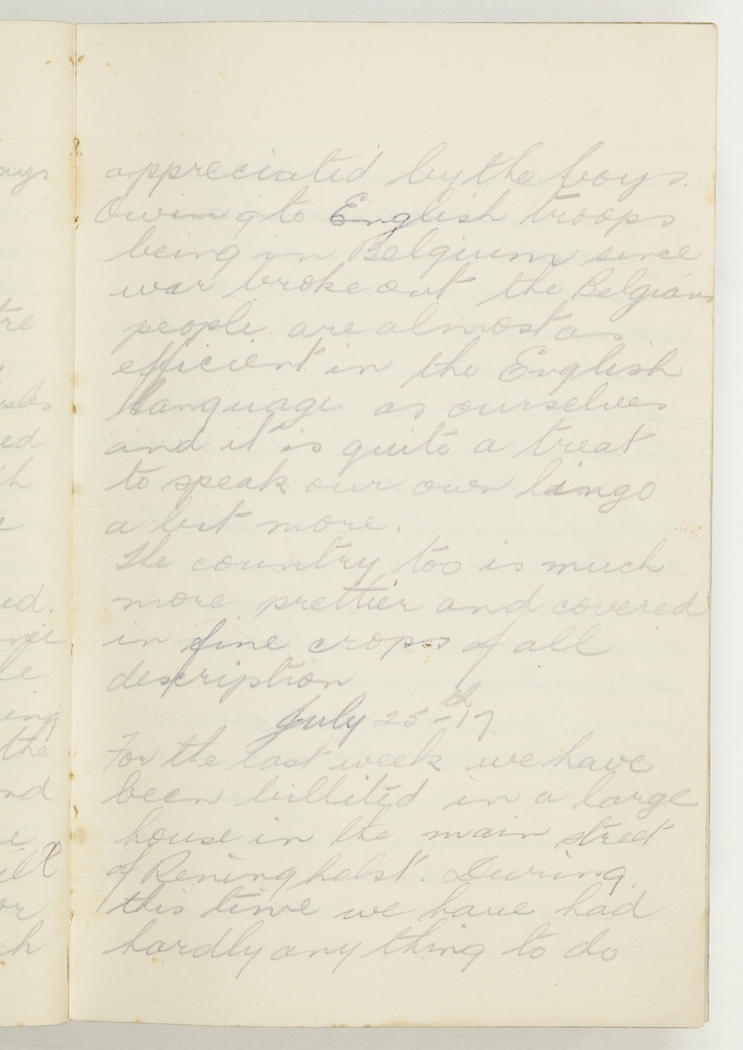 appreciated by the boys.
Owing to English troops
being in Belgium since
war broke out the Belgian
people are almost as
efficient in the English
language as ourselves
and it is quite a treat
to speak our own lingo
a bit more.
The country too is much
more prettier and covered
in fine crops of all
description
July 25th-17
For the last week we have
been billited in a large
house in the main street
of Reninghelst. During
this time we have had
hardly any thing to do